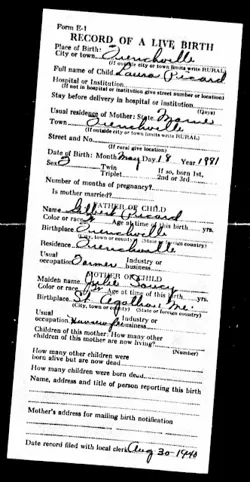 Form E-1
RECORD OF A LIVE BIRTH
Place of Birth:
City or town Frenchville
(If outside city or town limits write RURAL)
Full name of Child Laura Picard
Hospital or Institution
(If not in hospital or institution give street number or location)
Stay before delivery in hospital or institution
(days)
Usual residence of Mother: State Maine
Town Frenchville
(If outside city or town limits write RURAL)
Street and No.
(If rural give location)
Date of Birth: Month May Day 18 Year 1931
Sex Twin If so, born 1st,
Triplet 2nd or 3rd
Number of months of pregnancy?
Is mother married?
FATHER OF CHILD
Name Picard
Color or race Age at time of this birth yrs.
Birthplace Frenchville
(City, town or county) (State or foreign country)
Residence Frenchville
Usual Industry or
occupation Farmer business
MOTHER OF CHILD
Maiden name Julie Saucy
Color or race Age at time of this birth yrs.
Birthplace St. Agatha Me.
(City, town or county) (State or foreign country)
Usual Industry or
occupation business
Children of this mother: How many other
children of this mother are now living?
(Number)
How many other children were
born alive but are now dead
How many children were born dead
Name, address and title of person reporting this birth
Mother's address for mailing birth notification
Date record filed with local clerk Aug 30-1940